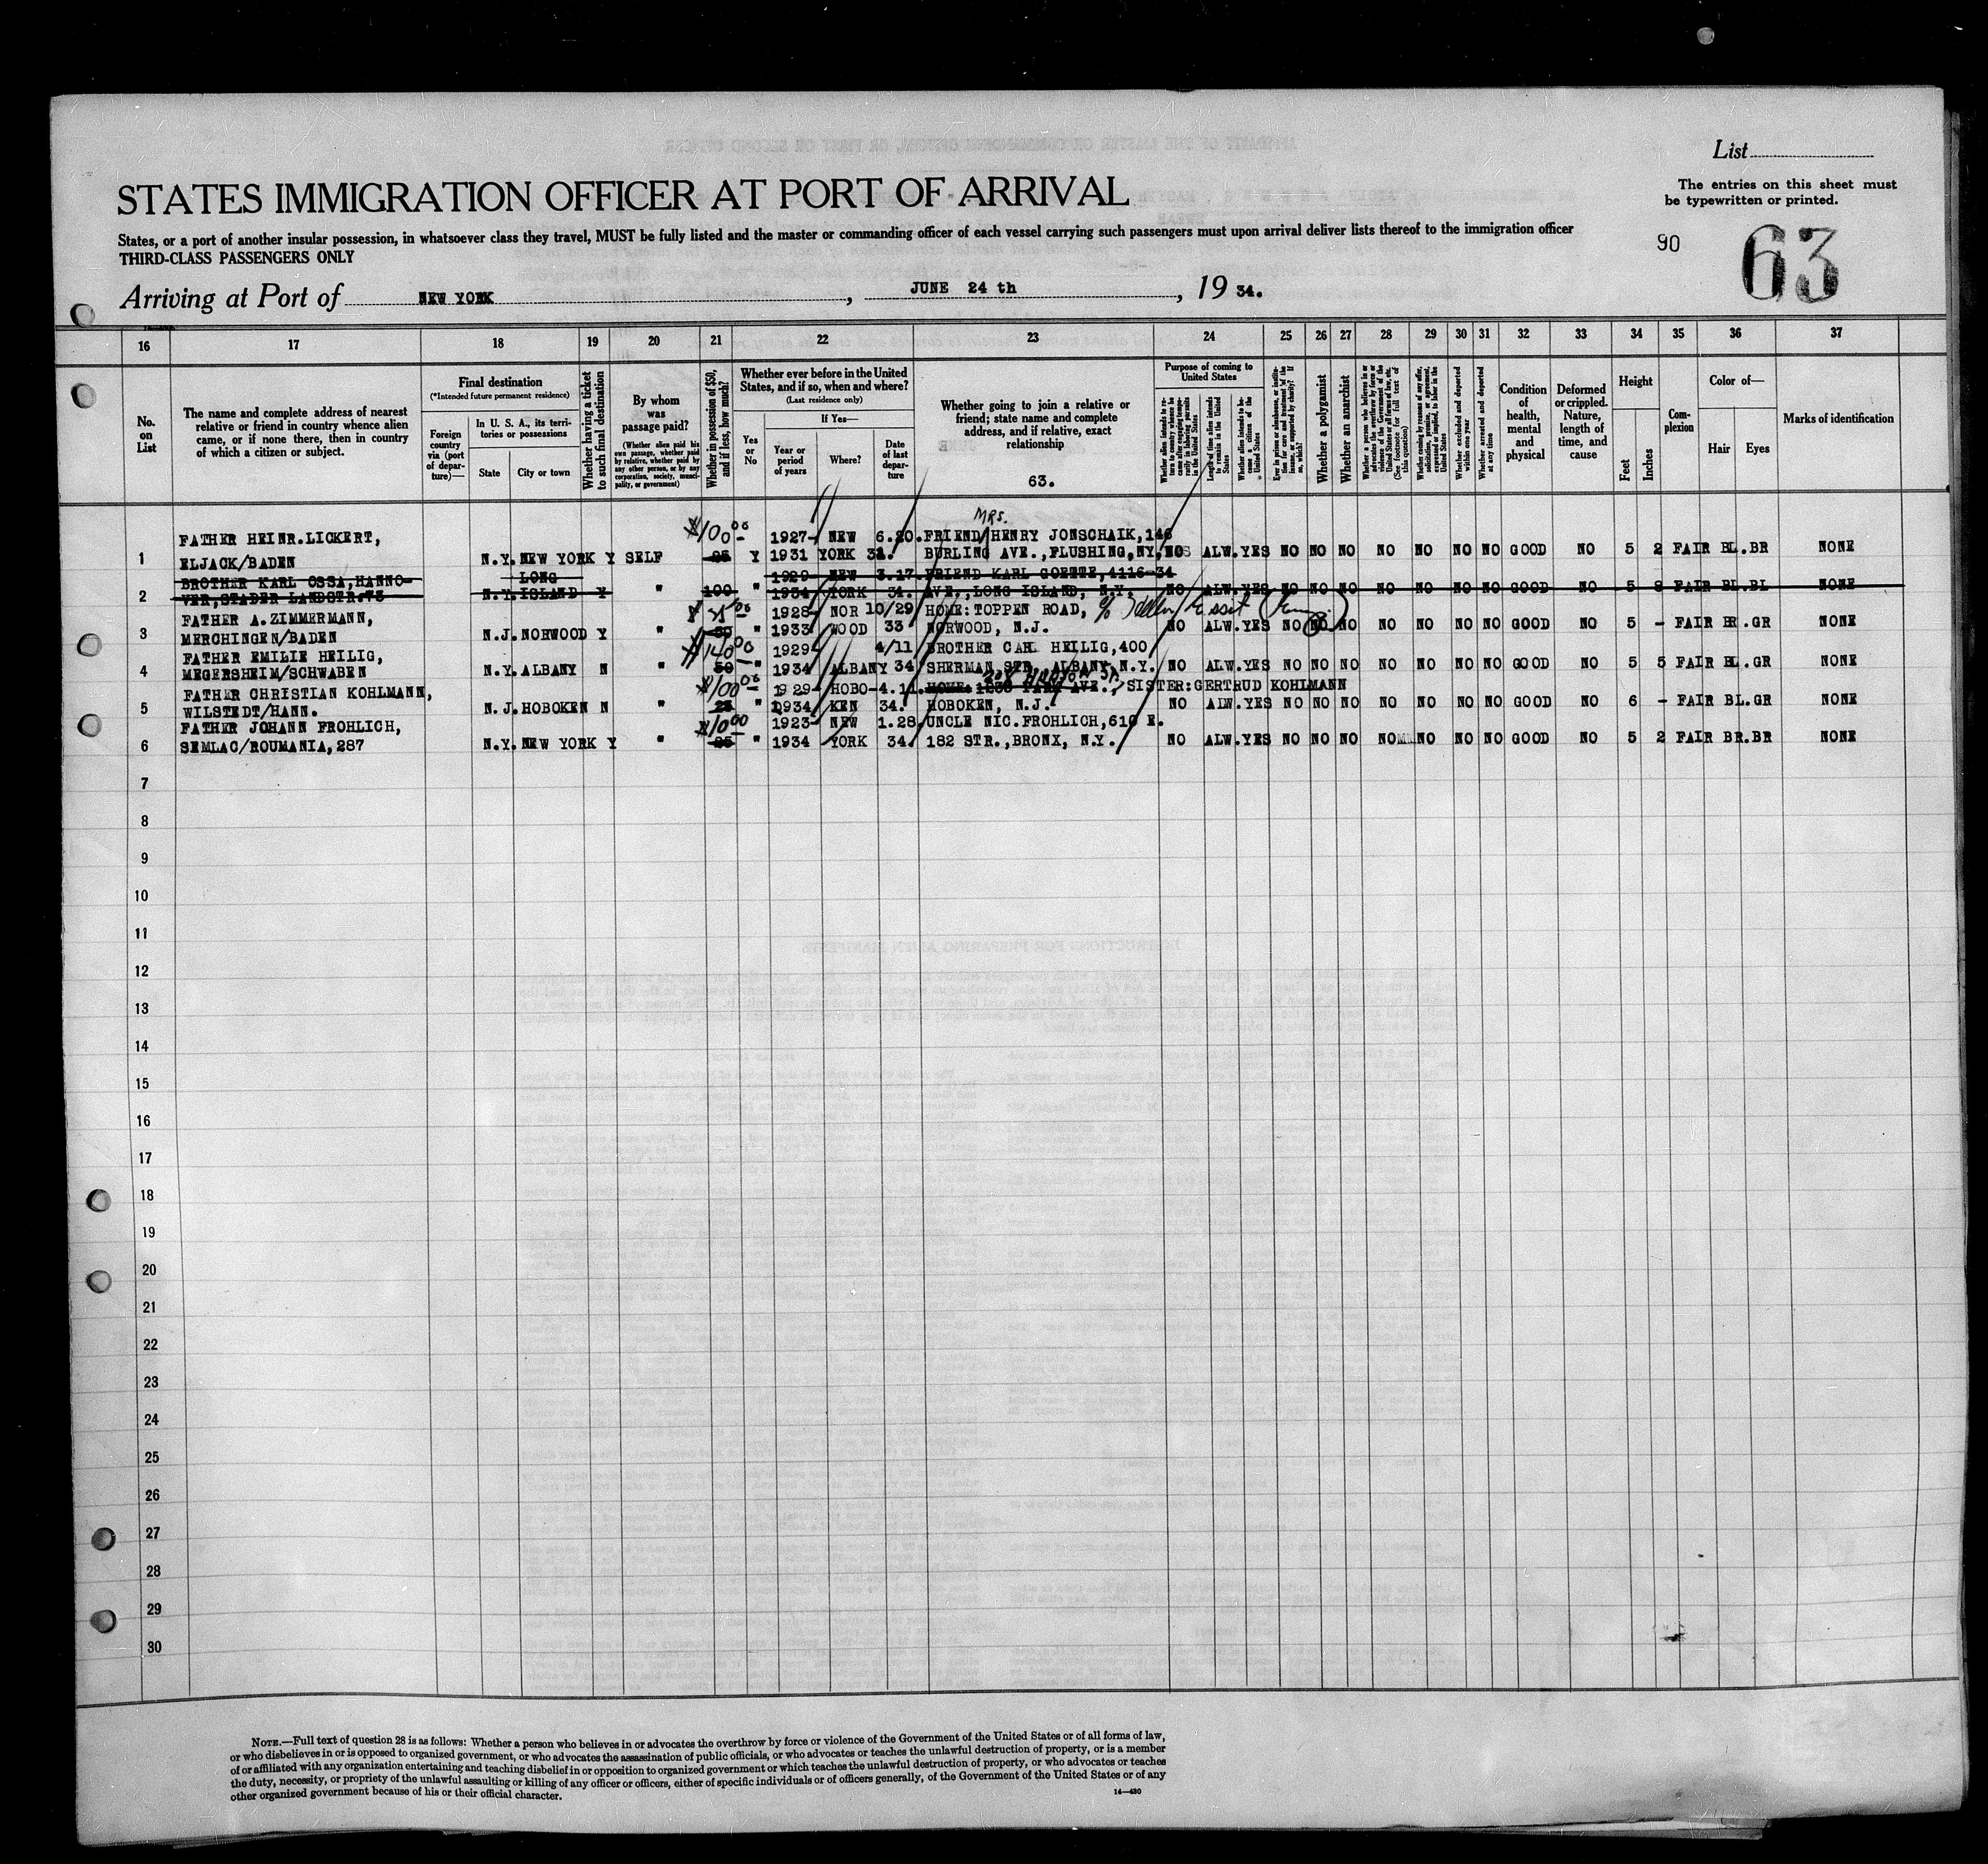 List
STATES IMMIGRATION OFFICER AT PORT OF ARRIVAL
The entries on this sheet must
be typewritten or printed.
States, or a port of another insular possession, in whatsoever class they travel, MUST be fully listed and the master or commanding officer of each vessel carrying such passengers must upon arrival deliver lists thereof to the immigration officer
THIRD-CLASS PASSENGERS ONLY
90 63
Arriving at Port of NEW YORK, JUNE 24 th, 19 34.
16 17 18 19 20 21 22 23 24 25 26 27 28 29 30 31 32 33 34 35 36 37
No. on List
The name and complete address of nearest
relative or friend in country whence alien
came, or if none there, then in country
of which a citizen or subject.
Final destination
(*Intended future permanent residence)
Foreign country via (port of departure)—
In U. S. A., its territories or possessions
State
City or town
Whether having a ticket to such final destination
By whom was passage paid?
(Whether alien paid his own passage, whether paid by relative, whether paid by any other person, or by any corporation, society, municipality, or government)
Whether in possession of $50, and if less, how much?
Whether ever before in the United
States, and if so, when and where?
(Last residence only)
Yes or No
If Yes—
Year or period of years
Where?
Date of last departure
Whether going to join a relative or
friend; state name and complete
address, and if relative, exact
relationship
63.
Purpose of coming to United States
Length of time alien intends to remain in the United States
Whether alien intends to become a citizen of the United States
Whether a polygamist
Whether an anarchist
Whether excluded and deported within one year
Whether arrested and deported at any time
Condition of health, mental and physical
Deformed or crippled. Nature, length of time, and cause
Height
Feet
Inches
Complexion
Color of—
Hair
Eyes
Marks of identification
MRS.
FATHER HEINR.LICKERT, $100.00 1927- NEW 6.20. FRIEND HENRY JONSCHAIK,146
1 ELJACK/BADEN N.Y. NEW YORK Y SELF 25 Y 1931 YORK 31. BURLING AVE.,FLUSHING,NY. NO ALW. YES NO NO NO NO NO NO NO GOOD NO 5 2 FAIR BL.BR NONE
BROTHER KARL OSSA,HANNO- LONG 1929- NEW 3.17. FRIEND KARL GOETTE,4116-34
2 VER,STADER LANDSTR.75 N.Y. ISLAND Y " 100 " 1934 YORK 34. AVE., LONG ISLAND, N.Y. NO ALW. YES NO NO NO NO NO NO NO GOOD NO 5 8 FAIR BL.BL NONE
FATHER A.ZIMMERMANN, 1928- NOR 10/29 HOME: TOPPEN ROAD,
3 MERCHINGEN/BADEN N.J. NORWOOD Y " 50 " 1933 WOOD 33 NORWOOD, N.J. NO ALW. YES NO NO NO NO NO NO NO GOOD NO 5 - FAIR BR.GR NONE
FATHER EMILIE HEILIG, $140.00 1929- 4/11 BROTHER CARL HEILIG,400
4 MEGERSHEIM/SCHWABEN N.Y. ALBANY N " 50 " 1934 ALBANY 34 SHERMAN STR. ALBANY, N.Y. NO ALW. YES NO NO NO NO NO NO NO GOOD NO 5 5 FAIR BL.GR NONE
FATHER CHRISTIAN KOHLMANN, $100.00 1929- HOBO- 4.11. HOME: 1230 PARK AVE., 208 HUDSON ST. SISTER: GERTRUD KOHLMANN
5 WILSTEDT/HANN. N.J. HOBOKEN N " 25 " 1934 KEN 34. HOBOKEN, N.J. NO ALW. YES NO NO NO NO NO NO NO GOOD NO 6 - FAIR BL.GR NONE
FATHER JOHANN FROHLICH, $10.00 1923- NEW 1.28. UNCLE NIC.FROHLICH,610 E.
6 SEMLAC/ROUMANIA,287 N.Y. NEW YORK Y " 25 " 1934 YORK 34. 182 STR.,BRONX, N.Y. NO ALW. YES NO NO NO NO NO NO NO GOOD NO 5 2 FAIR BR.BR NONE
7
8
9
10
11
12
13
14
15
16
17
18
19
20
21
22
23
24
25
26
27
28
29
30
NOTE.—Full text of question 28 is as follows: Whether a person who believes in or advocates the overthrow by force or violence of the Government of the United States or of all forms of law,
or who disbelieves in or is opposed to organized government, or who advocates the assassination of public officials, or who advocates or teaches the unlawful destruction of property, or is a member
of or affiliated with any organization entertaining and teaching disbelief in or opposition to organized government or which teaches the unlawful destruction of property, or who advocates or teaches
the duty, necessity, or propriety of the unlawful assaulting or killing of any officer or officers, either of specific individuals or of officers generally, of the Government of the United States or of any
other organized government because of his or their official character.
14—430